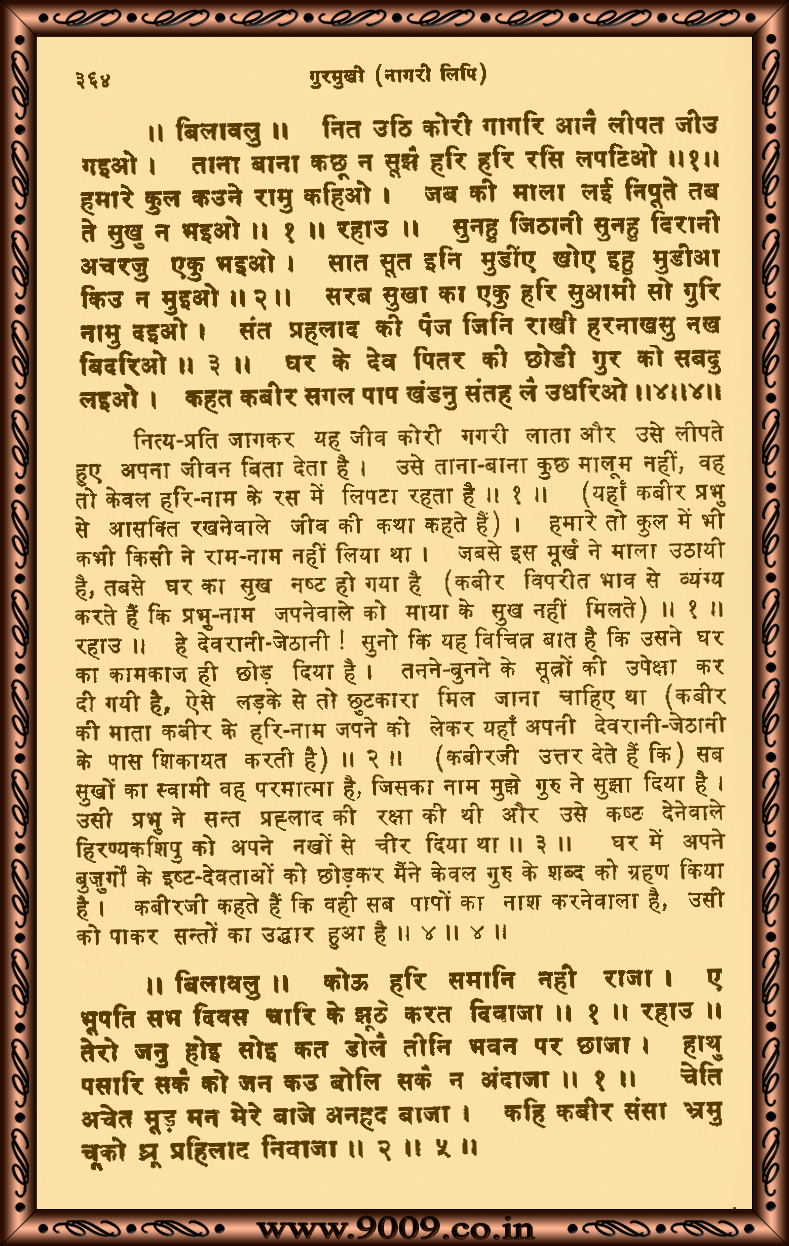 ३६४ गुरमुखी (नागरी लिपि)
॥ बिलावलु ॥ नित उठि कोरी गागरि आनै लीपत जीउ
गइओ । ताना बाना कछू न सूझै हरि हरि रसि लपटिओ ॥१॥
हमारे कुल कउने रामु कहिओ । जब की माला लई निपूते तब
ते सुखु न भइओ ॥ १ ॥ रहाउ ॥ सुनहु जिठानी सुनहु दिरानी
अचरजु एकु भइओ । सात सूत इनि मुडींए खोए इहु मुडीआ
किउ न मुइओ ॥ २ ॥ सरब सुखा का एकु हरि सुआमी सो गुरि
नामु दइओ । संत प्रहलाद की पैज जिनि राखी हरनाखसु नख
बिदरिओ ॥ ३ ॥ घर के देव पितर की छोडी गुर को सबदु
लइओ । कहत कबीर सगल पाप खंडनु संतह लै उधरिओ ॥४॥४॥
नित्य-प्रति जागकर यह जीव कोरी गगरी लाता और उसे लीपते
हुए अपना जीवन बिता देता है । उसे ताना-बाना कुछ मालूम नहीं, वह
तो केवल हरि-नाम के रस में लिपटा रहता है ॥ १ ॥ (यहाँ कबीर प्रभु
से आसक्ति रखनेवाले जीव की कथा कहते हैं) । हमारे तो कुल में भी
कभी किसी ने राम-नाम नहीं लिया था । जबसे इस मूर्ख ने माला उठायी
है, तबसे घर का सुख नष्ट हो गया है (कबीर विपरीत भाव से व्यंग्य
करते हैं कि प्रभु-नाम जपनेवाले को माया के सुख नहीं मिलते) ॥ १ ॥
रहाउ ॥ हे देवरानी-जेठानी ! सुनो कि यह विचित्र बात है कि उसने घर
का कामकाज ही छोड़ दिया है । तनने-बुनने के सूत्रों की उपेक्षा कर
दी गयी है, ऐसे लड़के से तो छुटकारा मिल जाना चाहिए था (कबीर
की माता कबीर के हरि-नाम जपने को लेकर यहाँ अपनी देवरानी-जेठानी
के पास शिकायत करती है) ॥ २ ॥ (कबीरजी उत्तर देते हैं कि) सब
सुखों का स्वामी वह परमात्मा है, जिसका नाम मुझे गुरु ने सुझा दिया है ।
उसी प्रभु ने सन्त प्रह्लाद की रक्षा की थी और उसे कष्ट देनेवाले
हिरण्यकशिपु को अपने नखों से चीर दिया था ॥ ३ ॥ घर में अपने
बुज़ुर्गों के इष्ट-देवताओं को छोड़कर मैंने केवल गुरु के शब्द को ग्रहण किया
है । कबीरजी कहते हैं कि वही सब पापों का नाश करनेवाला है, उसी
को पाकर सन्तों का उद्धार हुआ है ॥ ४ ॥ ४ ॥
॥ बिलावलु ॥ कोऊ हरि समानि नही राजा । ए
भूपति सभ दिवस चारि के झूठे करत दिवाजा ॥ १ ॥ रहाउ ॥
तेरो जनु होइ सोइ कत डोलै तीनि भवन पर छाजा । हाथु
पसारि सकै को जन कउ बोलि सकै न अंदाजा ॥ १ ॥ चेति
अचेत मूड़ मन मेरे बाजे अनहद बाजा । कहि कबीर संसा भ्रमु
चूको ध्रू प्रहिलाद निवाजा ॥ २ ॥ ५ ॥
www.9009.co.in